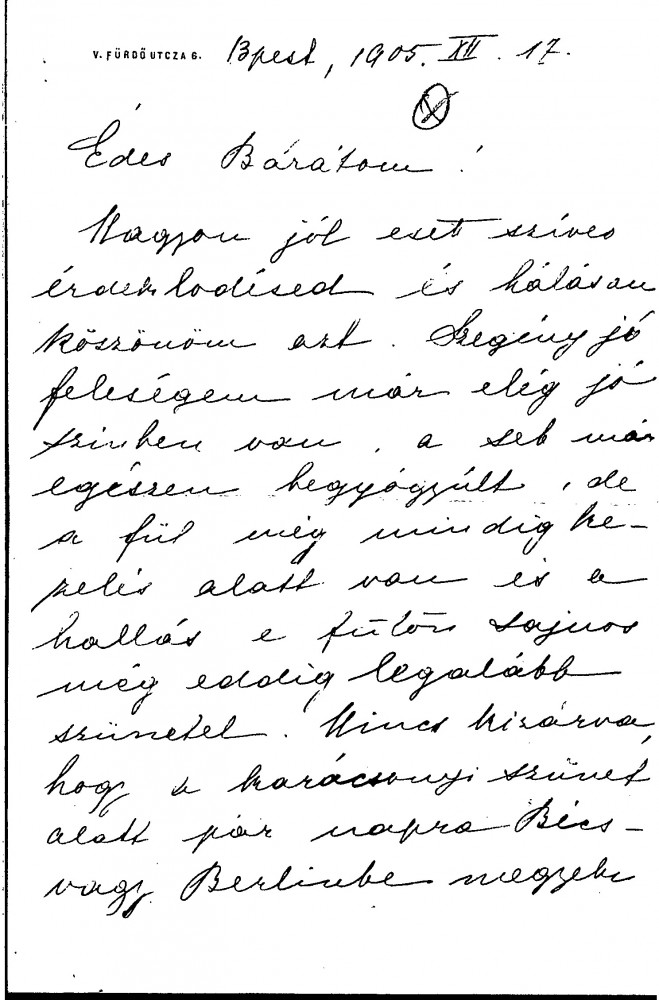 V. FÜRDŐ UTCZA 6. Bpest, 1905. XII. 17.
Édes Barátom!
Nagyon jól esett szíves
érdeklodésed és hálásan
köszönöm azt. Szegény jó
feleségem már elég jó
szinben van, a seb már
egészen begyógyúlt, de
a fül még mindig ke-
zelés alatt van és a
hallás e fülön sajnos
még eddig legalább
szünetel. Nincs kizárva,
hogy a karácsonyi szünet
alatt pár napra Bécs-
vagy Berlinbe megyek